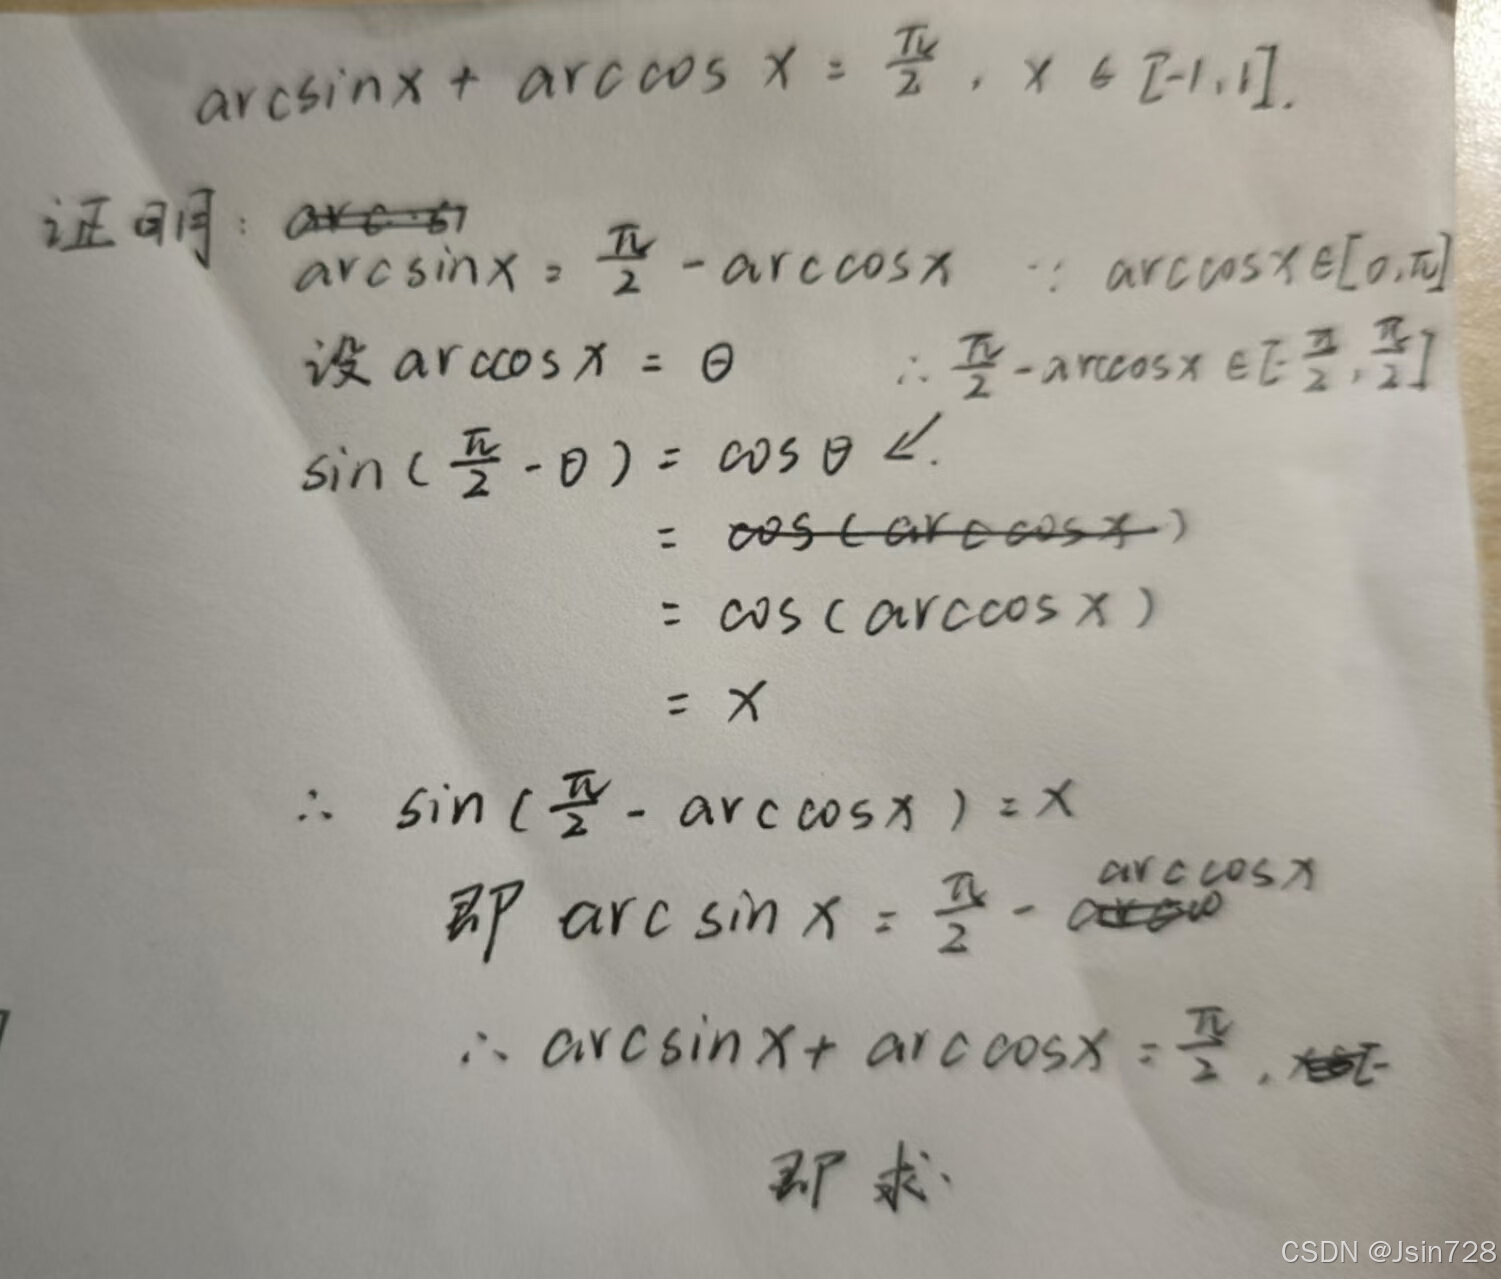 arcsinx + arccos x = π/2 , x ∈ [-1,1].
证明: arc si
arcsinx = π/2 - arccosx ∵ arccosx∈[0,π]
设 arccosx = θ ∴ π/2 - arccosx ∈[-π/2,π/2]
sin(π/2 - θ) = cosθ ↙.
= cos(arccosx)
= cos(arccosx)
= x
∴ sin(π/2 - arccosx) = x
即 arcsinx = π/2 - arccosx
∴ arcsinx + arccosx = π/2 ,
即求.
CSDN @Jsin728